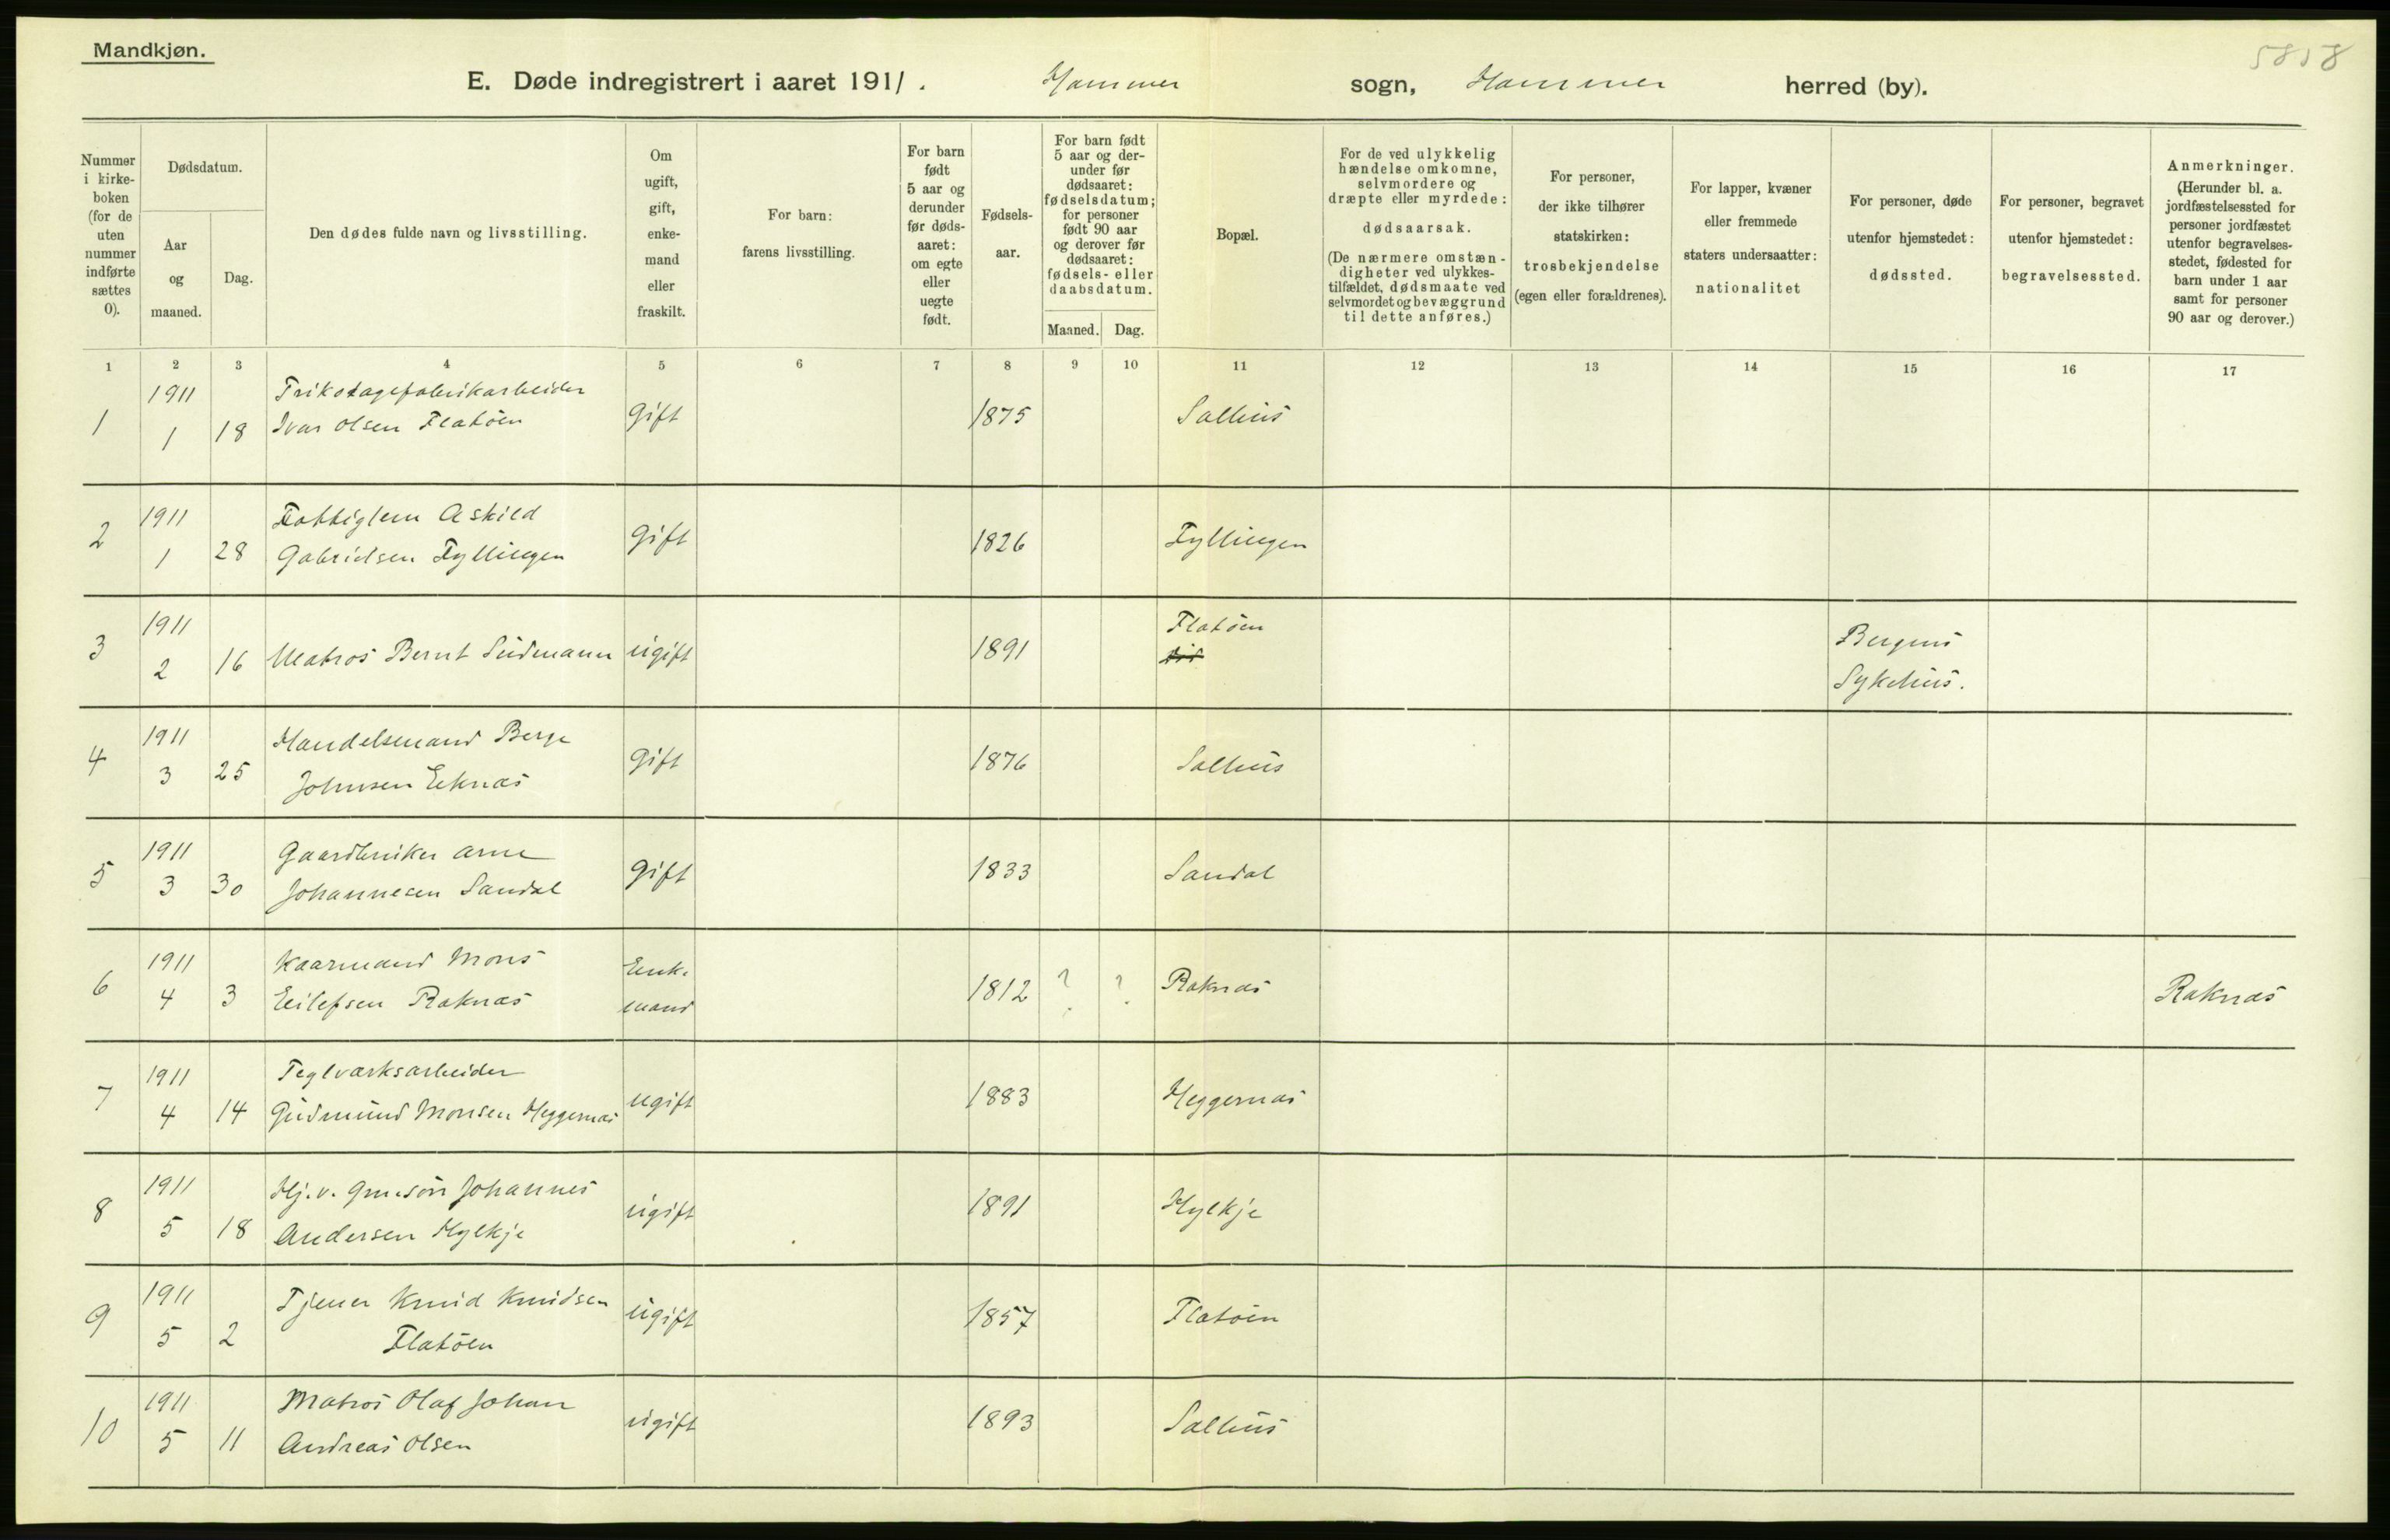 Mandkjøn.
5858
E. Døde indregistrert i aaret 1911. Hammer sogn, Hammer herred (by).
Nummer i kirke-boken (for de uten nummer indførte sættes 0).
Dødsdatum.
Aar og maaned.
Dag.
Den dødes fulde navn og livsstilling.
Om ugift, gift, enke-mand eller fraskilt.
For barn: farens livsstilling.
For barn født 5 aar og derunder før døds-aaret: om egte eller uegte født.
Fødsels-aar.
For barn født 5 aar og der-under før dødsaaret: fødselsdatum; for personer født 90 aar og derover før dødsaaret: fødsels- eller daabsdatum.
Maaned. Dag.
Bopæl.
For de ved ulykkelig hændelse omkomne, selvmordere og dræpte eller myrdede: dødsaarsak. (De nærmere omstæn-digheter ved ulykkes-tilfældet, dødsmaate ved selvmordet og bevæggrund til dette anføres.)
For personer, der ikke tilhører statskirken: trosbekjendelse (egen eller forældrenes).
For lapper, kvæner eller fremmede staters undersaatter: nationalitet
For personer, døde utenfor hjemstedet: dødssted.
For personer, begravet utenfor hjemstedet: begravelsessted.
Anmerkninger. (Herunder bl. a. jordfæstelsessted for personer jordfæstet utenfor begravelses-stedet, fødested for barn under 1 aar samt for personer 90 aar og derover.)
1 2 3 4 5 6 7 8 9 10 11 12 13 14 15 16 17
1 1911 1 18 Trikotagefabrikarbeider Ivar Olsen Flatöen Gift 1875 Salhus
2 1911 1 28 Fattiglem Askild Gabrielsen Fyllingen Gift 1826 Fyllingen
3 1911 2 16 Matros Bernt Sudmann ugift 1891 Flatöen Bergens Sykehus.
4 1911 3 25 Handelsmand Berge Johnsen Eknæs Gift 1876 Salhus
5 1911 3 30 Gaardbruker Arne Johannesen Sandal Gift 1833 Sandal
6 1911 4 3 Kaarmand Mons Eilefsen Raknæs Enke mand 1812 ? ? Raknæs Raknæs
7 1911 4 14 Teglværksarbeider Gudmund Monsen Heggernæs ugift 1883 Heggernæs
8 1911 5 18 Hj. v. Johannes Andersen Hylkje ugift 1891 Hylkje
9 1911 5 2 Tjener Knud Knudsen Flatöen ugift 1857 Flatöen
10 1911 5 11 Matros Olaf Johan Andreas Olsen ugift 1893 Salhus